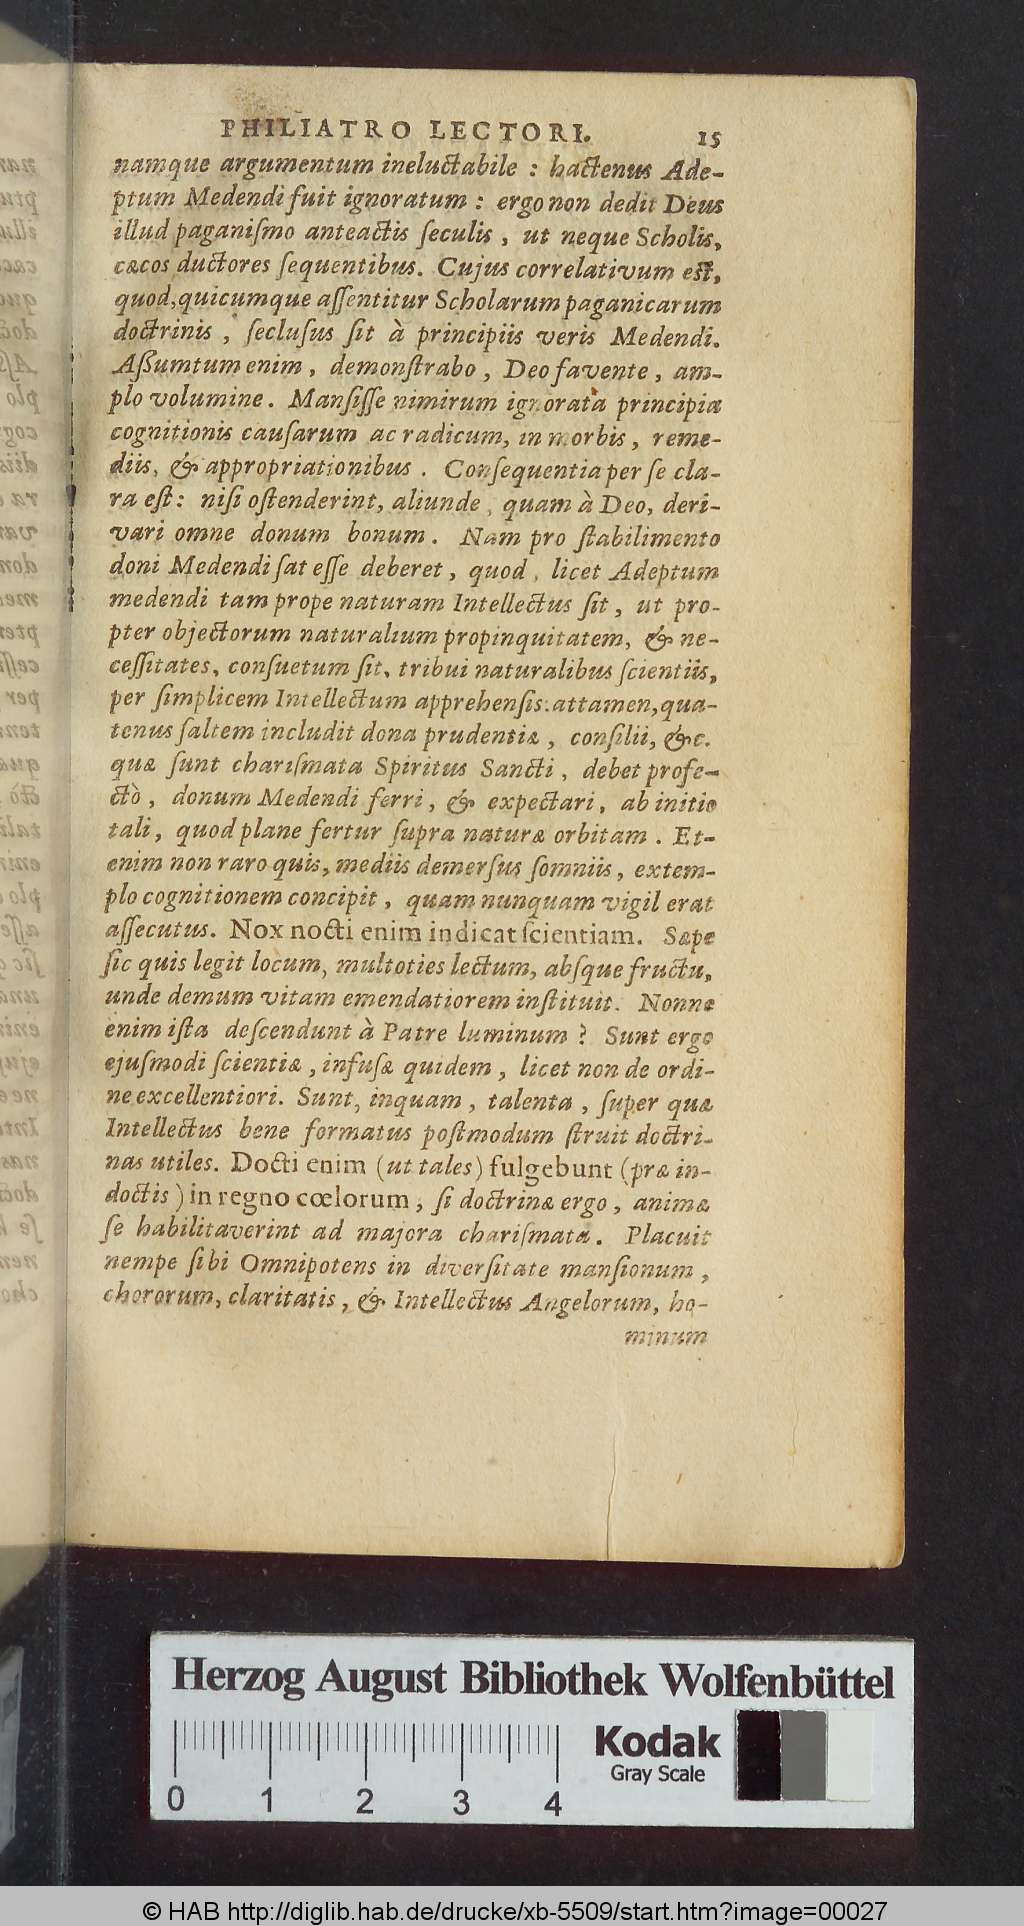 PHILIATRO LECTORI. 15
namque argumentum ineluctabile : hactenus Ade-
ptum Medendi fuit ignoratum : ergo non dedit Deus
illud paganiſmo anteactis ſeculis, ut neque Scholis,
cæcos ductores ſequentibus. Cujus correlativum eſt,
quod, quicumque aſſentitur Scholarum paganicarum
doctrinis, ſecluſus ſit à principiis veris Medendi.
Aßumtum enim, demonſtrabo, Deo favente, am-
plo volumine. Manſiſſe nimirum ignorata principia
cognitionis cauſarum ac radicum, in morbis, reme-
diis, & appropriationibus. Conſequentia per ſe cla-
ra eſt: niſi oſtenderint, aliunde, quam à Deo, deri-
vari omne donum bonum. Nam pro ſtabilimento
doni Medendi ſat eſſe deberet, quod, licet Adeptum
medendi tam prope naturam Intellectus ſit, ut pro-
pter objectorum naturalium propinquitatem, & ne-
ceſſitates, conſuetum ſit, tribui naturalibus ſcientiis,
per ſimplicem Intellectum apprehenſis: attamen, qua-
tenus ſaltem includit dona prudentiæ, conſilii, &c.
quæ ſunt chariſmata Spiritus Sancti, debet profe-
ctò, donum Medendi ferri, & expectari, ab initio
tali, quod plane fertur ſupra naturæ orbitam. Et-
enim non raro quis, mediis demerſus ſomniis, extem-
plo cognitionem concipit, quam nunquam vigil erat
aſſecutus. Nox nocti enim indicat ſcientiam. Sæpe
ſic quis legit locum, multoties lectum, abſque fructu,
unde demum vitam emendatiorem inſtituit. Nonne
enim iſta deſcendunt à Patre luminum? Sunt ergo
ejuſmodi ſcientiæ, infuſæ quidem, licet non de ordi-
ne excellentiori. Sunt, inquam, talenta, ſuper quæ
Intellectus bene formatus poſtmodum ſtruit doctri-
nas utiles. Docti enim (ut tales) fulgebunt (præ in-
doctis) in regno cœlorum, ſi doctrinæ ergo, animæ
ſe habilitaverint ad majora chariſmata. Placuit
nempe ſibi Omnipotens in diverſitate manſionum,
chororum, claritatis, & Intellectus Angelorum, ho-
minum
Herzog August Bibliothek Wolfenbüttel
Kodak
Gray Scale
0 1 2 3 4
© HAB http://diglib.hab.de/drucke/xb-5509/start.htm?image=00027